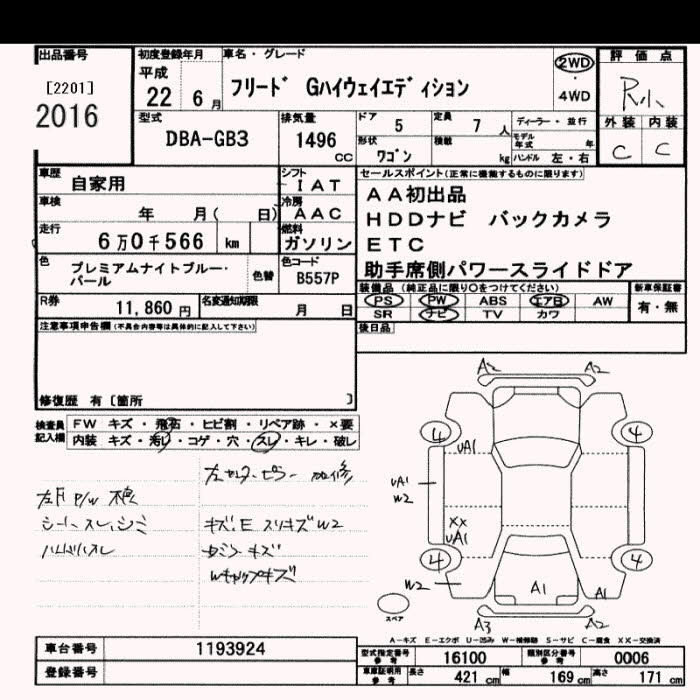 出品番号
[2201]
2016
初度登録年月
平成
22 6 月
車名・グレード
フリード Gハイウェイエディション
2WD
4WD
評価点
R小
外装 内装
C C
型式
DBA-GB3
排気量
1496 CC
ドア 5
定員 7 人
形状 ワゴン
積載 kg
ディーラー・並行
モデル年式 年
ハンドル 左・右
車歴 自家用
シフト IAT
車検 年 月( 日)
冷房 AAC
走行 6万0千566 km
燃料 ガソリン
色 プレミアムナイトブルー・パール
色替
色コード B557P
R券 11,860 円
名変通知期限 月 日
セールスポイント(正常に機能するものに限ります)
AA初出品
HDDナビ バックカメラ
ETC
助手席側パワースライドドア
装備品(純正品に限り○をつけてください)
PS PW ABS エアB AW
SR ナビ TV カワ
新車保証書
有・無
後日品
注意事項申告欄(不具合内容等は具体的に記入して下さい)
修復歴 有 [箇所 ]
検査員記入欄
FW キズ・飛石・ヒビ割・リペア跡・×要
内装 キズ・汚レ・コゲ・穴・スレ・キレ・破レ
左センターピラー 加修
左F P/W 不良
シートスレ、シミ
キズ・E スリキズW2
A2 A2
4 4
uA1
uA1
W2
XX
uA1
4 4
W2
A1 A1
スペア
A3 A2
A-キズ E-エクボ U-凹み W-補修跡 S-サビ C-腐食 XX-交換済
車台番号 1193924
登録番号
型式指定番号 参考 16100
類別区分番号 参考 0006
車庫証明用 参考 長さ 421 cm 幅 169 cm 高さ 171 cm